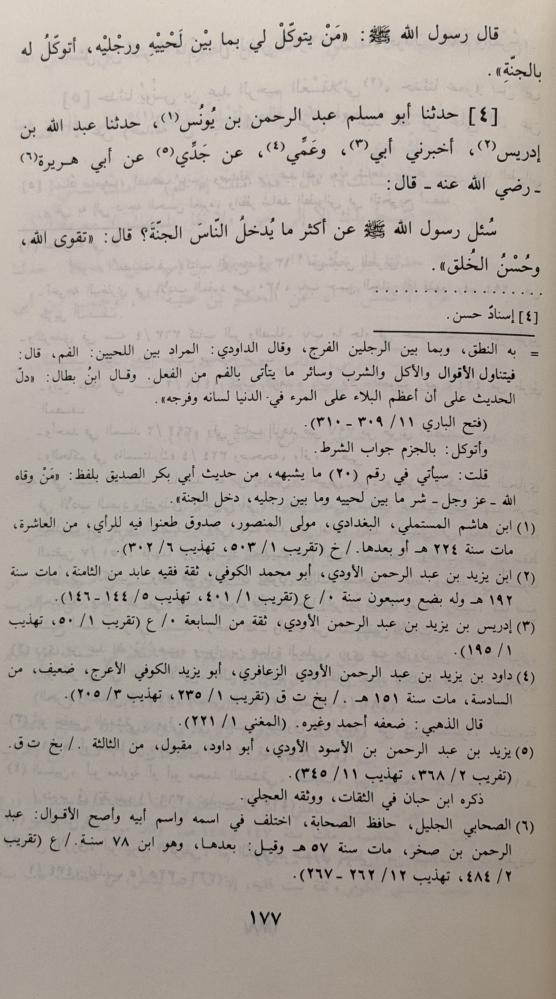 قال رسول الله ﷺ: «مَنْ يتوكّلْ لي بما بيْن لَحْييْهِ ورجْليْه، أتوكّلُ له
بالجنّةِ».
[٤] حدثنا أبو مسلم عبد الرحمن بن يُونُس(١)، حدثنا عبد الله بن
إدريس(٢)، أخبرني أبي(٣)، وعَمِّي(٤)، عن جَدِّي(٥) عن أبي هريرة(٦)
ـ رضي الله عنه ـ قال:
سُئل رسول الله ﷺ عن أكثر ما يُدخلُ النّاسَ الجنّةَ؟ قال: «تقوى الله،
وحُسْنُ الخُلق».
[٤] إسنادٌ حسن.
= به النطق، وبما بين الرجلين الفرج، وقال الداودي: المراد بين اللحيين: الفم، قال:
فيتناول الأقوال والأكل والشرب وسائر ما يتأتى بالفم من الفعل. وقال ابنُ بطال: «دلّ
الحديث على أن أعظم البلاء على المرء في الدنيا لسانه وفرجه».
(فتح الباري ١١/ ٣٠٩ - ٣١٠).
وأتوكل: بالجزم جواب الشرط.
قلت: سيأتي في رقم (٢٠) ما يشبهه، من حديث أبي بكر الصديق بلفظ: «مَنْ وقاه
الله ـ عز وجل ـ شر ما بين لحييه وما بين رجليه، دخل الجنة».
(١) ابن هاشم المستملي، البغدادي، مولى المنصور، صدوق طعنوا فيه للرأي، من العاشرة،
مات سنة ٢٢٤ هـ أو بعدها. / خ (تقريب ١/ ٥٠٣، تهذيب ٦/ ٣٠٢).
(٢) ابن يزيد بن عبد الرحمن الأودي، أبو محمد الكوفي، ثقة فقيه عابد من الثامنة، مات سنة
١٩٢ هـ وله بضع وسبعون سنة ٠/ ع (تقريب ١/ ٤٠١، تهذيب ٥/ ١٤٤ - ١٤٦).
(٣) إدريس بن يزيد بن عبد الرحمن الأودي، ثقة من السابعة ٠/ ع (تقريب ١/ ٥٠، تهذيب
١/ ١٩٥).
(٤) داود بن يزيد بن عبد الرحمن الأودي الزعافري، أبو يزيد الكوفي الأعرج، ضعيف، من
السادسة، مات سنة ١٥١ هـ ./ بخ ت ق (تقريب ١/ ٢٣٥، تهذيب ٣/ ٢٠٥).
قال الذهبي: ضعفه أحمد وغيره. (المغني ١/ ٢٢١).
(٥) يزيد بن عبد الرحمن بن الأسود الأودي، أبو داود، مقبول، من الثالثة ./ بخ ت ق.
(تقريب ٢/ ٣٦٨، تهذيب ١١/ ٣٤٥).
ذكره ابن حبان في الثقات، ووثقه العجلي.
(٦) الصحابي الجليل، حافظ الصحابة، اختلف في اسمه واسم أبيه وأصح الأقوال: عبد
الرحمن بن صخر، مات سنة ٥٧ هـ وقيل: بعدها، وهو ابن ٧٨ سنة./ ع (تقريب
٢/ ٤٨٤، تهذيب ١٢/ ٢٦٢ - ٢٦٧).
١٧٧